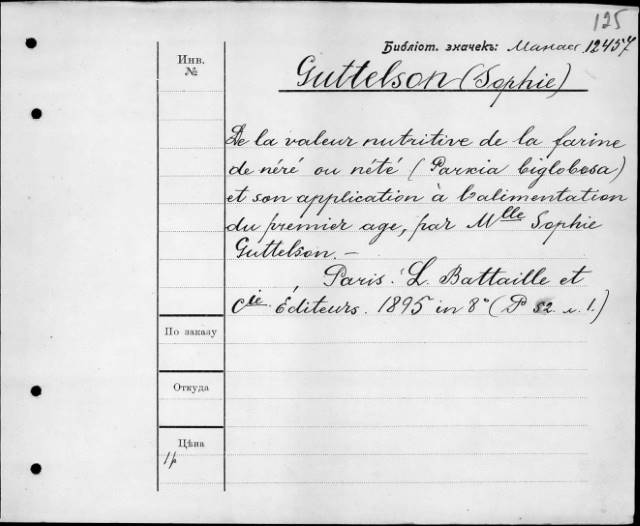 125
Библіот. значекъ: Манасс 12457
Инв.
№
Guttelson (Sophie)
De la valeur nutritive de la farine
de néré ou nété (Parkia biglobosa)
et son application à l'alimentation
du premier age, par Mlle Sophie
Guttelson. –
Paris. L. Battaille et
Cie. Éditeurs. 1895 in 8° (P 52. 1.)
По заказу
Откуда
Цѣна
1р